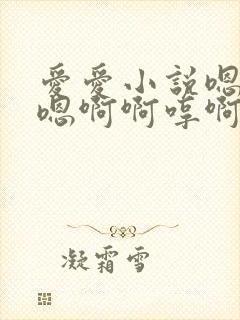 愛愛小説嗯
嗯啊啊哼啊
凝霜雪